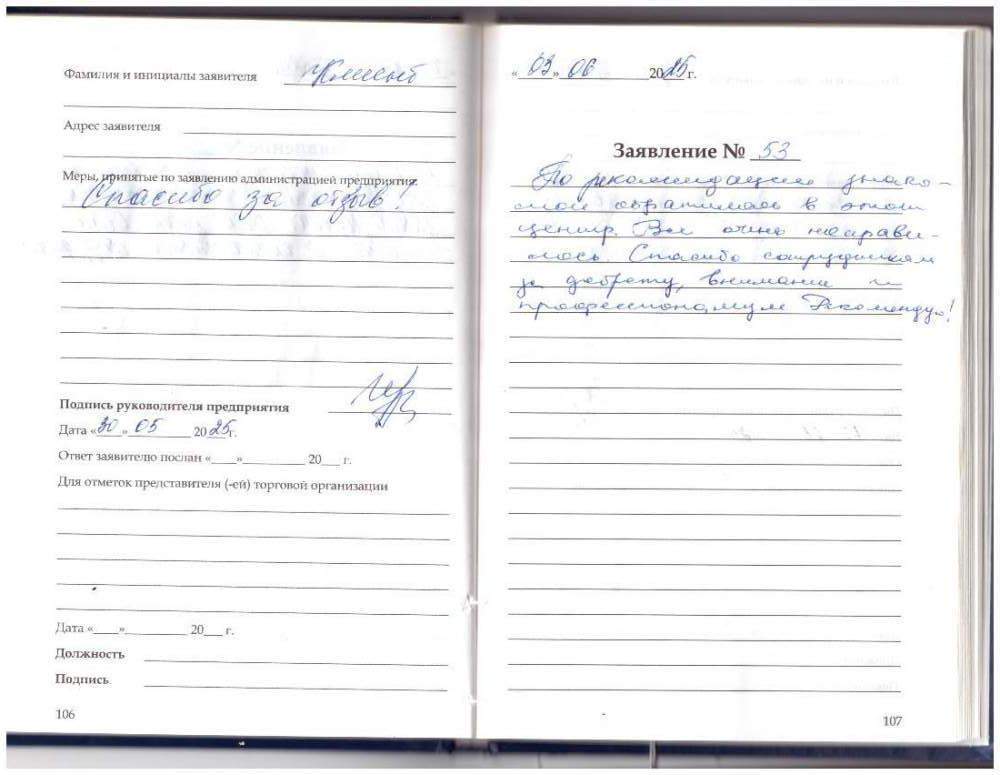 Фамилия и инициалы заявителя Клиент
Адрес заявителя
Меры, принятые по заявлению администрацией предприятия:
Спасибо за отзыв!
Подпись руководителя предприятия
Дата «30» 05 2025г.
Ответ заявителю послан «____»__________ 20___ г.
Для отметок представителя (-ей) торговой организации
Дата «____»__________ 20___ г.
Должность
Подпись
106
«03» 06 2025г.
Заявление № 53
По рекомендации знако-
мой обратилась в этот
центр. Все очень понрави-
лось. Спасибо сотрудникам
за доброту, внимание и
профессионализм. Рекомендую!
107